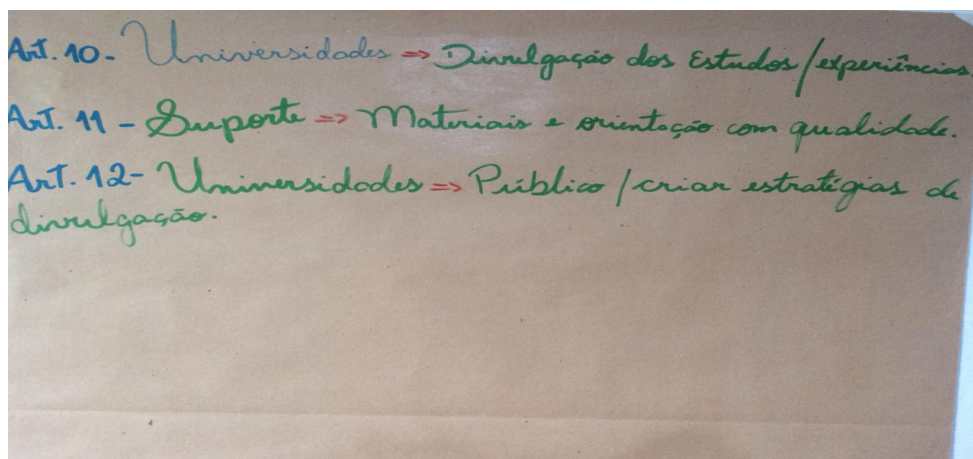 Art. 10 - Universidades => Divulgação dos Estudos/experiências.
Art. 11 - Suporte => Materiais e orientação com qualidade.
Art. 12 - Universidades => Público / criar estratégias de
divulgação.